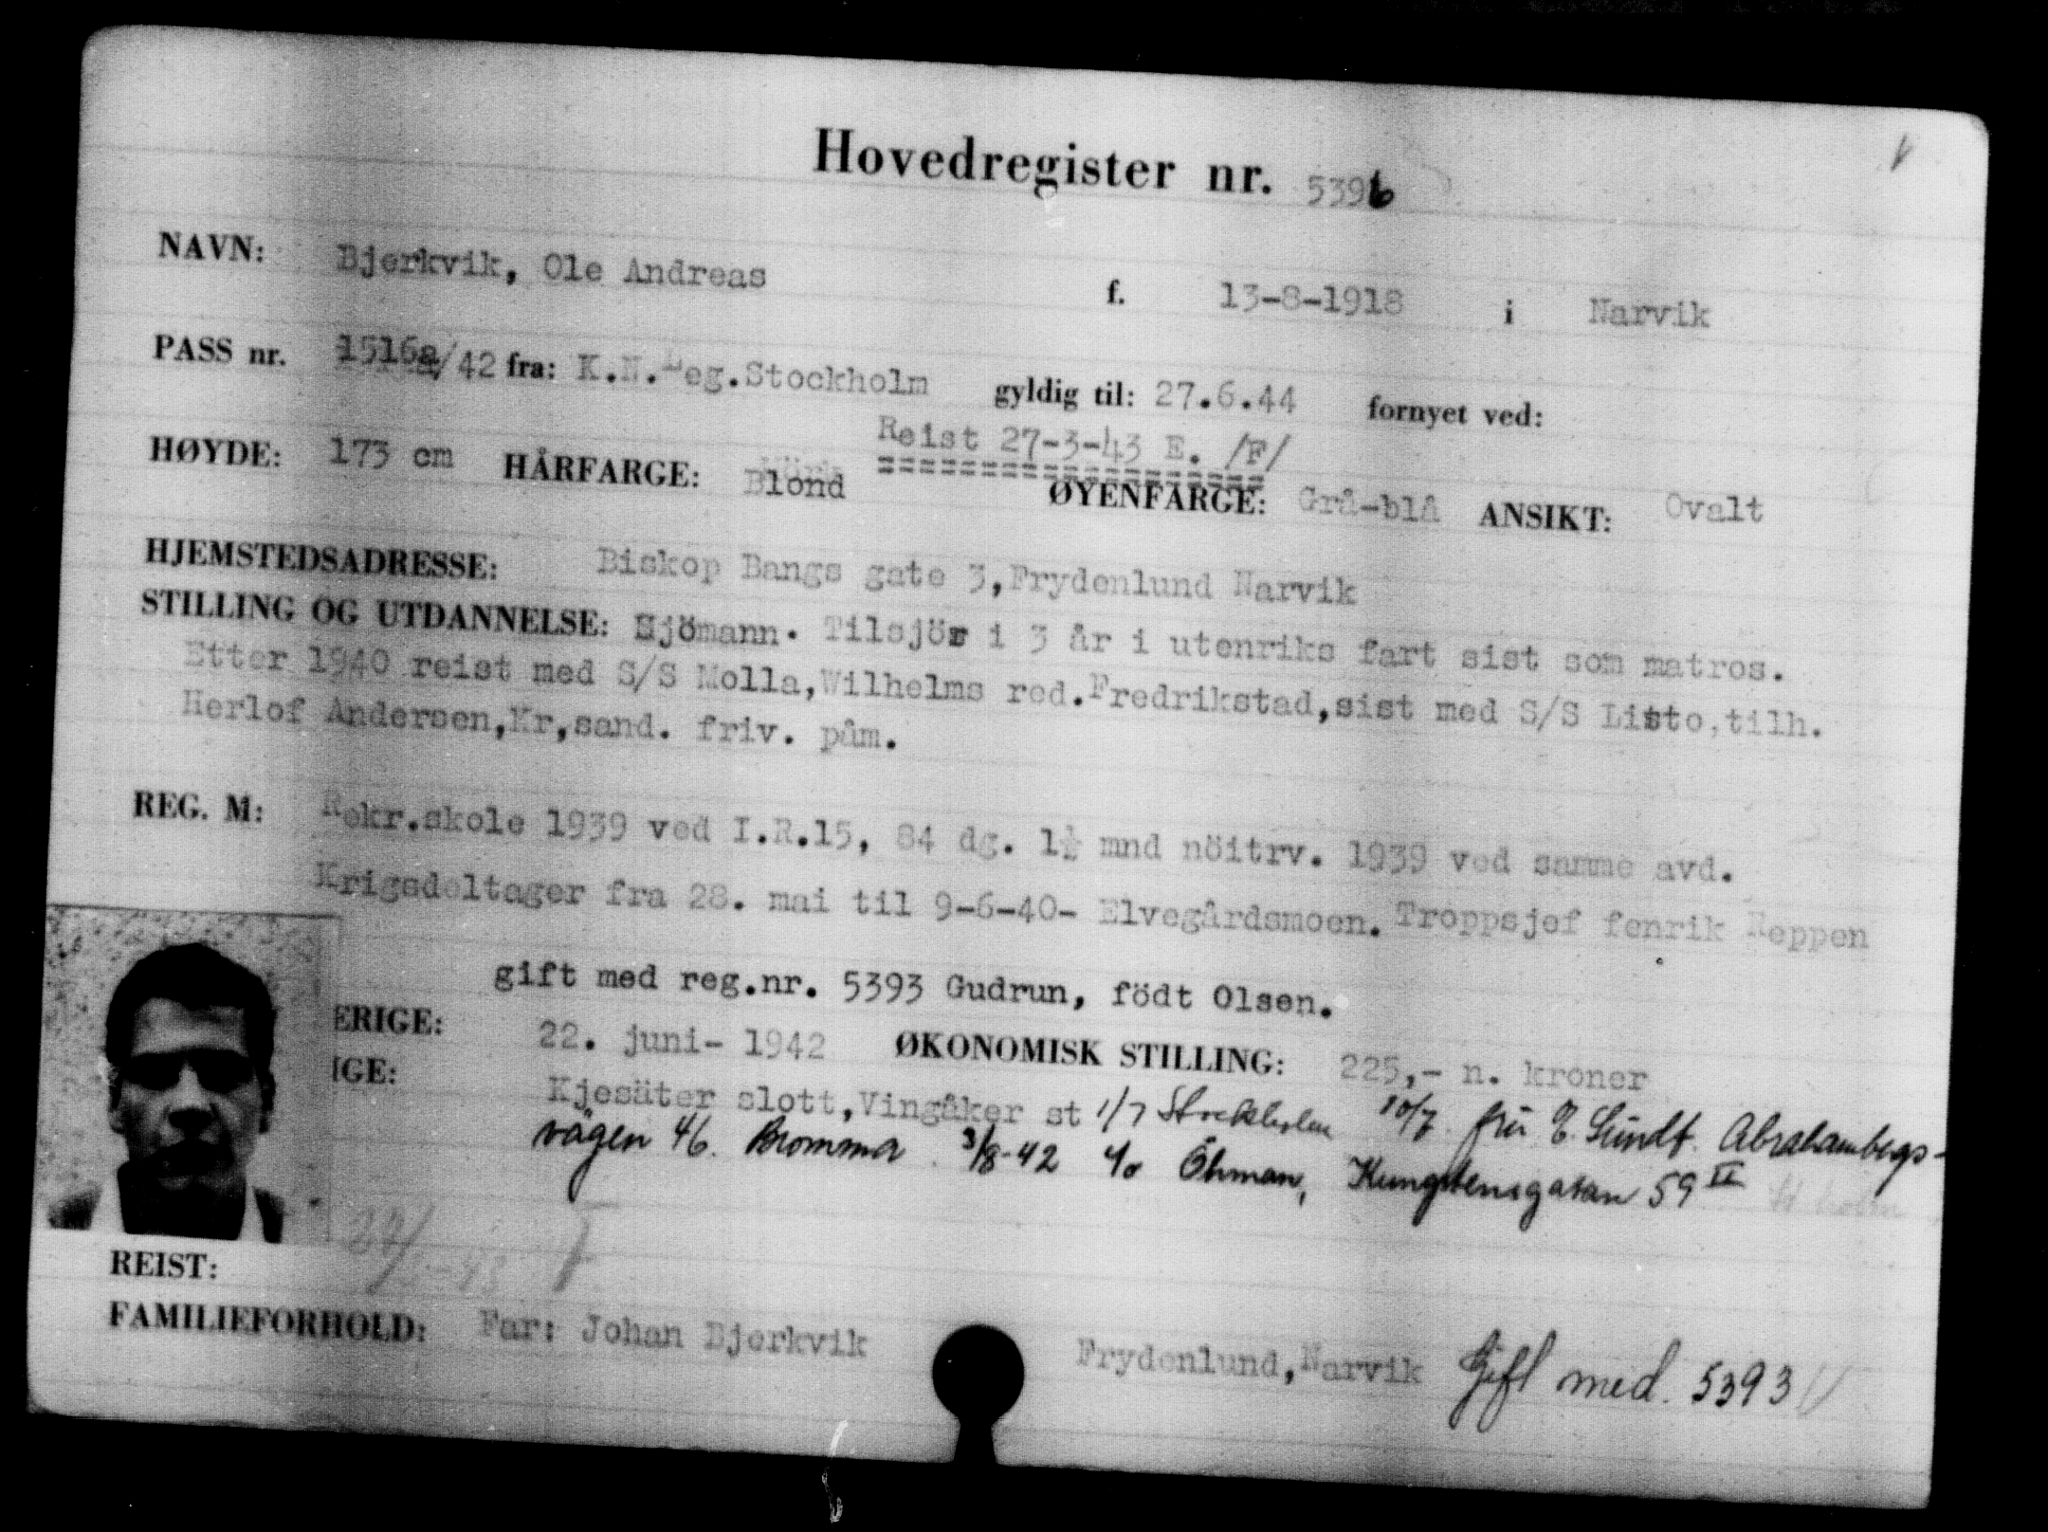 Hovedregister nr. 5396
NAVN: Bjerkvik, Ole Andreas f. 13-8-1918 i Narvik
PASS nr. 1516a/42 fra: K.N.Leg.Stockholm gyldig til: 27.6.44 fornyet ved:
Reist 27-3-43 E. /F/
HØYDE: 173 cm HÅRFARGE: Blond ØYENFARGE: Grå-blå ANSIKT: Ovalt
HJEMSTEDSADRESSE: Biskop Bangs gate 3,Frydenlund Narvik
STILLING OG UTDANNELSE: Sjömann. Tilsjös i 3 år i utenriks fart sist som matros.
Etter 1940 reist med S/S Molla,Wilhelms red.Fredrikstad,sist med S/S Listo,tilh.
Herlof Andersen,Kr,sand. friv. påm.
REG. M: Rekr.skole 1939 ved I.R.15, 84 dg. 1½ mnd nöitrv. 1939 ved samme avd.
Krigsdeltager fra 28. mai til 9-6-40- Elvegårdsmoen. Troppsjef fenrik Reppen
gift med reg.nr. 5393 Gudrun, födt Olsen.
ERIGE: 22. juni- 1942 ØKONOMISK STILLING: 225,- n. kroner
IGE: Kjesäter slott,Vingåker st 1/7 Stockholm 10/7 fru E. Sundt. Abrahambergs-
vägen 46. Bromma. 3/8-42 c/o Öhman, Kungstensgatan 59 II
REIST: 27/ -43 F
FAMILIEFORHOLD: Far: Johan Bjerkvik Frydenlund,Narvik Gift med. 5393